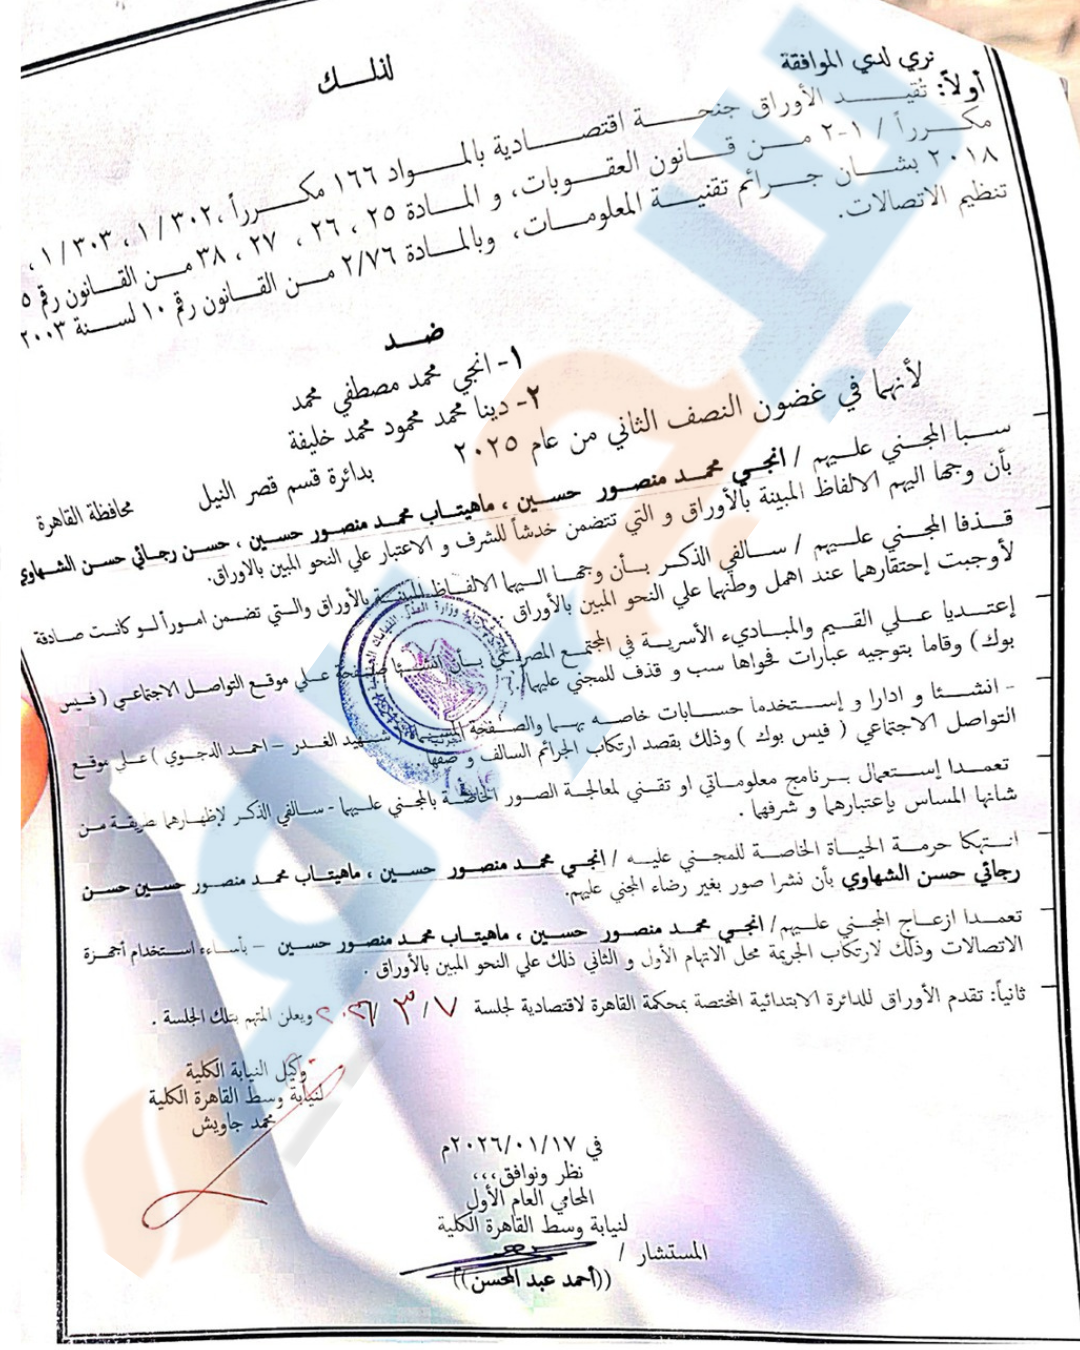 لذلك
نري لدي الموافقة
أولاً: تُقيد الأوراق جنحة اقتصادية بالمواد ١٦٦ مكرراً ، ١/٣٠٢ ، ١/٣٠٣ ،
مكرراً / ١-٢ من قانون العقوبات، و المادة ٢٥ ، ٢٦ ، ٢٧ ، ٣٨ من القانون رقم
٢٠١٨ بشان جرائم تقنية المعلومات، وبالمادة ٢/٧٦ من القانون رقم ١٠ لسنة ٢٠٠٣
تنظيم الاتصالات.
ضد
١- انجي محمد مصطفي محمد
٢- دينا محمد محمود محمد خليفة
لأنهما في غضون النصف الثاني من عام ٢٠٢٥
بدائرة قسم قصر النيل محافظة القاهرة
سبا المجني عليهم / انجي محمد منصور حسين ، ماهيتاب محمد منصور حسين ، حسن رجائي حسن الشهاوي
بأن وجها اليهم الالفاظ المبينة بالأوراق و التي تتضمن خدشاً للشرف و الاعتبار علي النحو المبين بالاوراق.
قذفا المجني عليهم / سالفي الذكر بأن وجها اليهما الالفاظ المبينة بالأوراق والتي تضمن اموراً لو كانت صادقة
لأوجبت إحتقارهما عند اهمل وطنهما علي النحو المبين بالأوراق .
إعتديا علي القيم والمباديء الأسرية في المجتمع المصري بأن انشئا صفحة علي موقع التواصل الاجتماعي ( فيس
بوك) وقاما بتوجيه عبارات فحواها سب و قذف للمجني عليهما.
- انشئا و ادارا و إستخدما حسابات خاصه بهما والصفحة المسماة ( شهيد الغدر – احمد الدجوي ) علي موقع
التواصل الاجتماعي ( فيس بوك ) وذلك بقصد ارتكاب الجرائم السالف و صفها .
تعمدا إستعمال برنامج معلوماتي او تقني لمعالجة الصور الخاصة بالمجني عليهما - سالفي الذكر لإظهارهما بطريقة من
شانها المساس بإعتبارهما و شرفهما .
انتهكا حرمة الحياة الخاصة للمجني عليه / انجي محمد منصور حسين ، ماهيتاب محمد منصور حسين حسن
رجائي حسن الشهاوي بأن نشرا صور بغير رضاء المجني عليهم.
تعمدا ازعاج المجني عليهم/ انجي محمد منصور حسين ، ماهيتاب محمد منصور حسين – بأساءء استخدام أجهزة
الاتصالات وذلك لارتكاب الجريمة محل الاتهام الأول و الثاني ذلك علي النحو المبين بالأوراق .
ثانياً: تقدم الأوراق للدائرة الابتدائية المختصة بمحكمة القاهرة لاقتصادية لجلسة ٢٠٢٦/٣/٧ ويعلن المتهم بتلك الجلسة .
وكيل النيابة الكلية
لنيابة وسط القاهرة الكلية
محمد جاويش
في ٢٠٢٦/٠١/١٧م
نظر ونوافق،،،
المحامي العام الأول
لنيابة وسط القاهرة الكلية
المستشار /
((أحمد عبد المحسن))